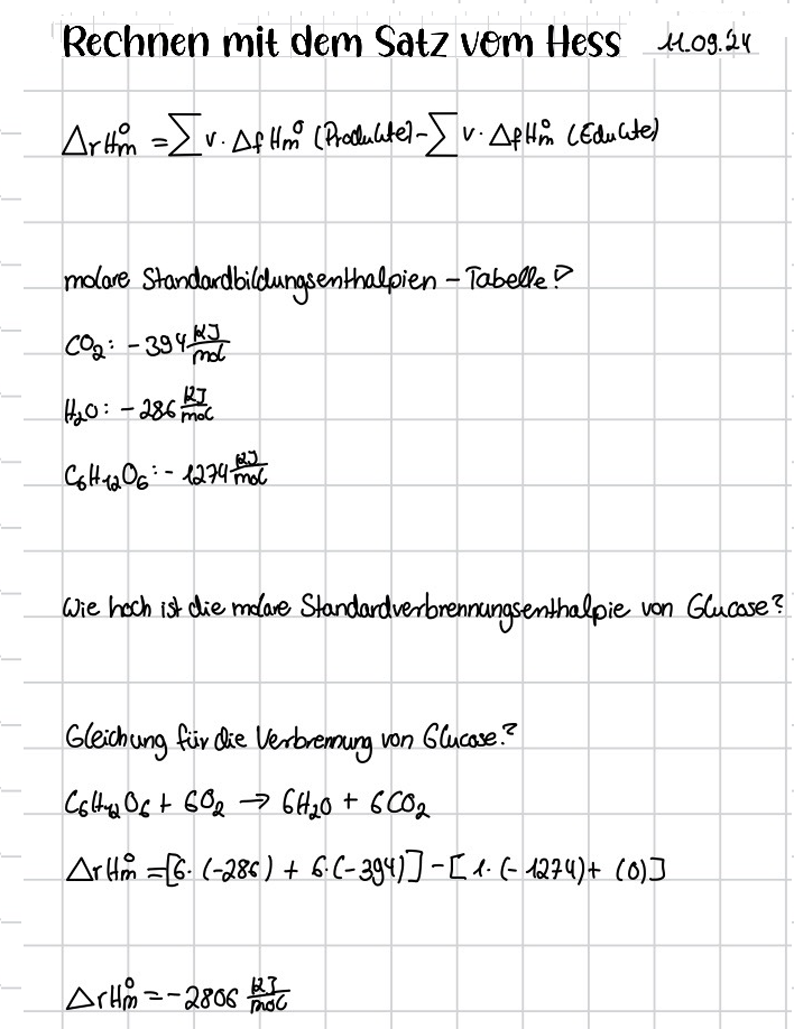 Rechnen mit dem Satz vom Hess 11.09.24
ΔrHm° = ∑ v · ΔfHm° (Produkte) - ∑ v · ΔfHm° (Edukte)
molare Standardbildungsenthalpien - Tabelle?
CO₂: - 394 kJ/mol
H₂O: - 286 kJ/mol
C₆H₁₂O₆: - 1274 kJ/mol
Wie hoch ist die molare Standardverbrennungsenthalpie von Glucose?
Gleichung für die Verbrennung von Glucose?
C₆H₁₂O₆ + 6O₂ → 6H₂O + 6CO₂
ΔrHm° = [6 · (-286) + 6 · (-394)] - [1 · (-1274) + (0)]
ΔrHm° = - 2806 kJ/mol